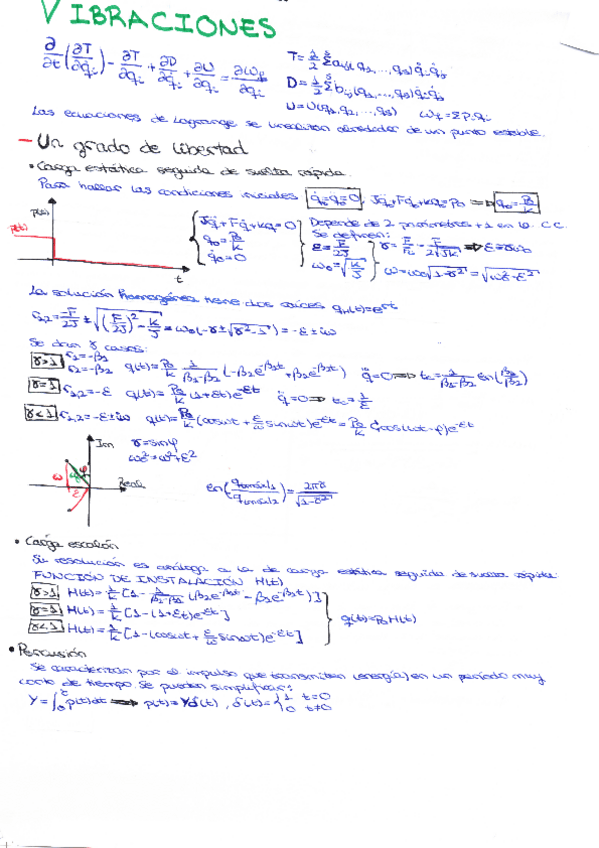 VIBRACIONES
∂/∂t (∂T/∂q̇ᵢ) - ∂T/∂qᵢ + ∂D/∂q̇ᵢ + ∂U/∂qᵢ = ∂ωf/∂qᵢ
T = 1/2 Σ aᵢⱼ (q₁, ..., qs) q̇ᵢ q̇ⱼ
D = 1/2 Σ bᵢⱼ (q₁, ..., qs) q̇ᵢ q̇ⱼ
U = U(q₁, q₂, ..., qs) ωf = Σ Pᵢ qᵢ
Las ecuaciones de Lagrange se linealizan alrededor de un punto estable.
- Un grado de libertad
• Carga estática seguida de suelta rápida.
Para hallar las condiciones iniciales q̇₀ = q̈₀ = 0, Jq̈₀ + Fq̇₀ + kq₀ = P₀ ⟹ q₀ = P₀/k
p(t)
t
Jq̈ + Fq̇ + kq = 0
q₀ = P₀/k
q̇₀ = 0
Depende de 2 parámetros + 1 en φ. C.C.
Se definen:
ε = F/2J γ = F/Fc = F/2√JK ⟹ ε = γω₀
ω₀ = √K/J ω = ω₀√1-γ² = √ω₀² - ε²
La solución homogénea tiene dos raíces qH(t) = e^rt
r₁,₂ = -F/2J ± √(F/2J)² - K/J = ω₀(-γ ± √γ²-1) = -ε ± iω
Se dan γ casos:
γ>1 r₁ = -β₁
r₂ = -β₂ q(t) = P₀/k 1/β₁-β₂ (-β₂e^-β₁t + β₁e^-β₂t) q̈ = 0 ⟹ tc = 1/β₁-β₂ ln(β₁/β₂)
γ=1 r₁,₂ = -ε q(t) = P₀/k (1+εt)e^-εt q̈ = 0 ⟹ tc = 1/ε
γ<1 r₁,₂ = -ε ± iω q(t) = P₀/k (cosωt + ε/ω senωt)e^-εt = P₀/k cos(ωt-φ)e^-εt
Im γ = sinφ
ω₀² = ω² + ε²
Real
ω ω₀ φ ε
ln(qmáx1/qmáx2) = 2πγ/√1-γ²
• Carga escalón
Su resolución es análoga a la de carga estática seguida de suelta rápida
FUNCIÓN DE INSTALACIÓN H(t)
γ>1 H(t) = 1/k [1 - 1/β₁-β₂ (β₁e^-β₂t - β₂e^-β₁t)]
γ=1 H(t) = 1/k [1 - (1+εt)e^-εt]
γ<1 H(t) = 1/k [1 - (cosωt + ε/ω senωt)e^-εt]
q(t) = P₀H(t)
• Percusión
Se caracterizan por el impulso que transmiten (energía) en un período muy
corto de tiempo. Se pueden simplificar:
Y = ∫₀^τ p(t)dt ⟹ p(t) = Yδ(t), δ(t) = {1 t=0
0 t≠0